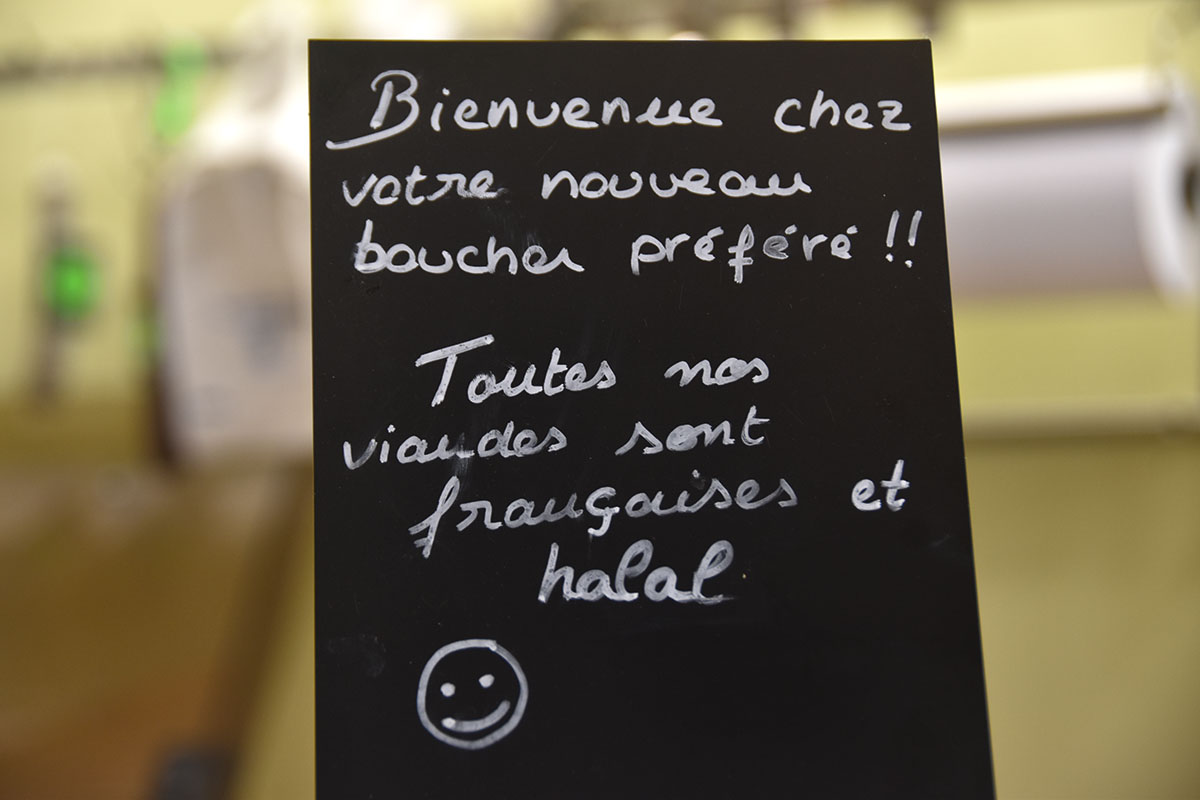 Bienvenue chez
votre nouveau
boucher préféré !!
Toutes nos
viandes sont
françaises et
halal